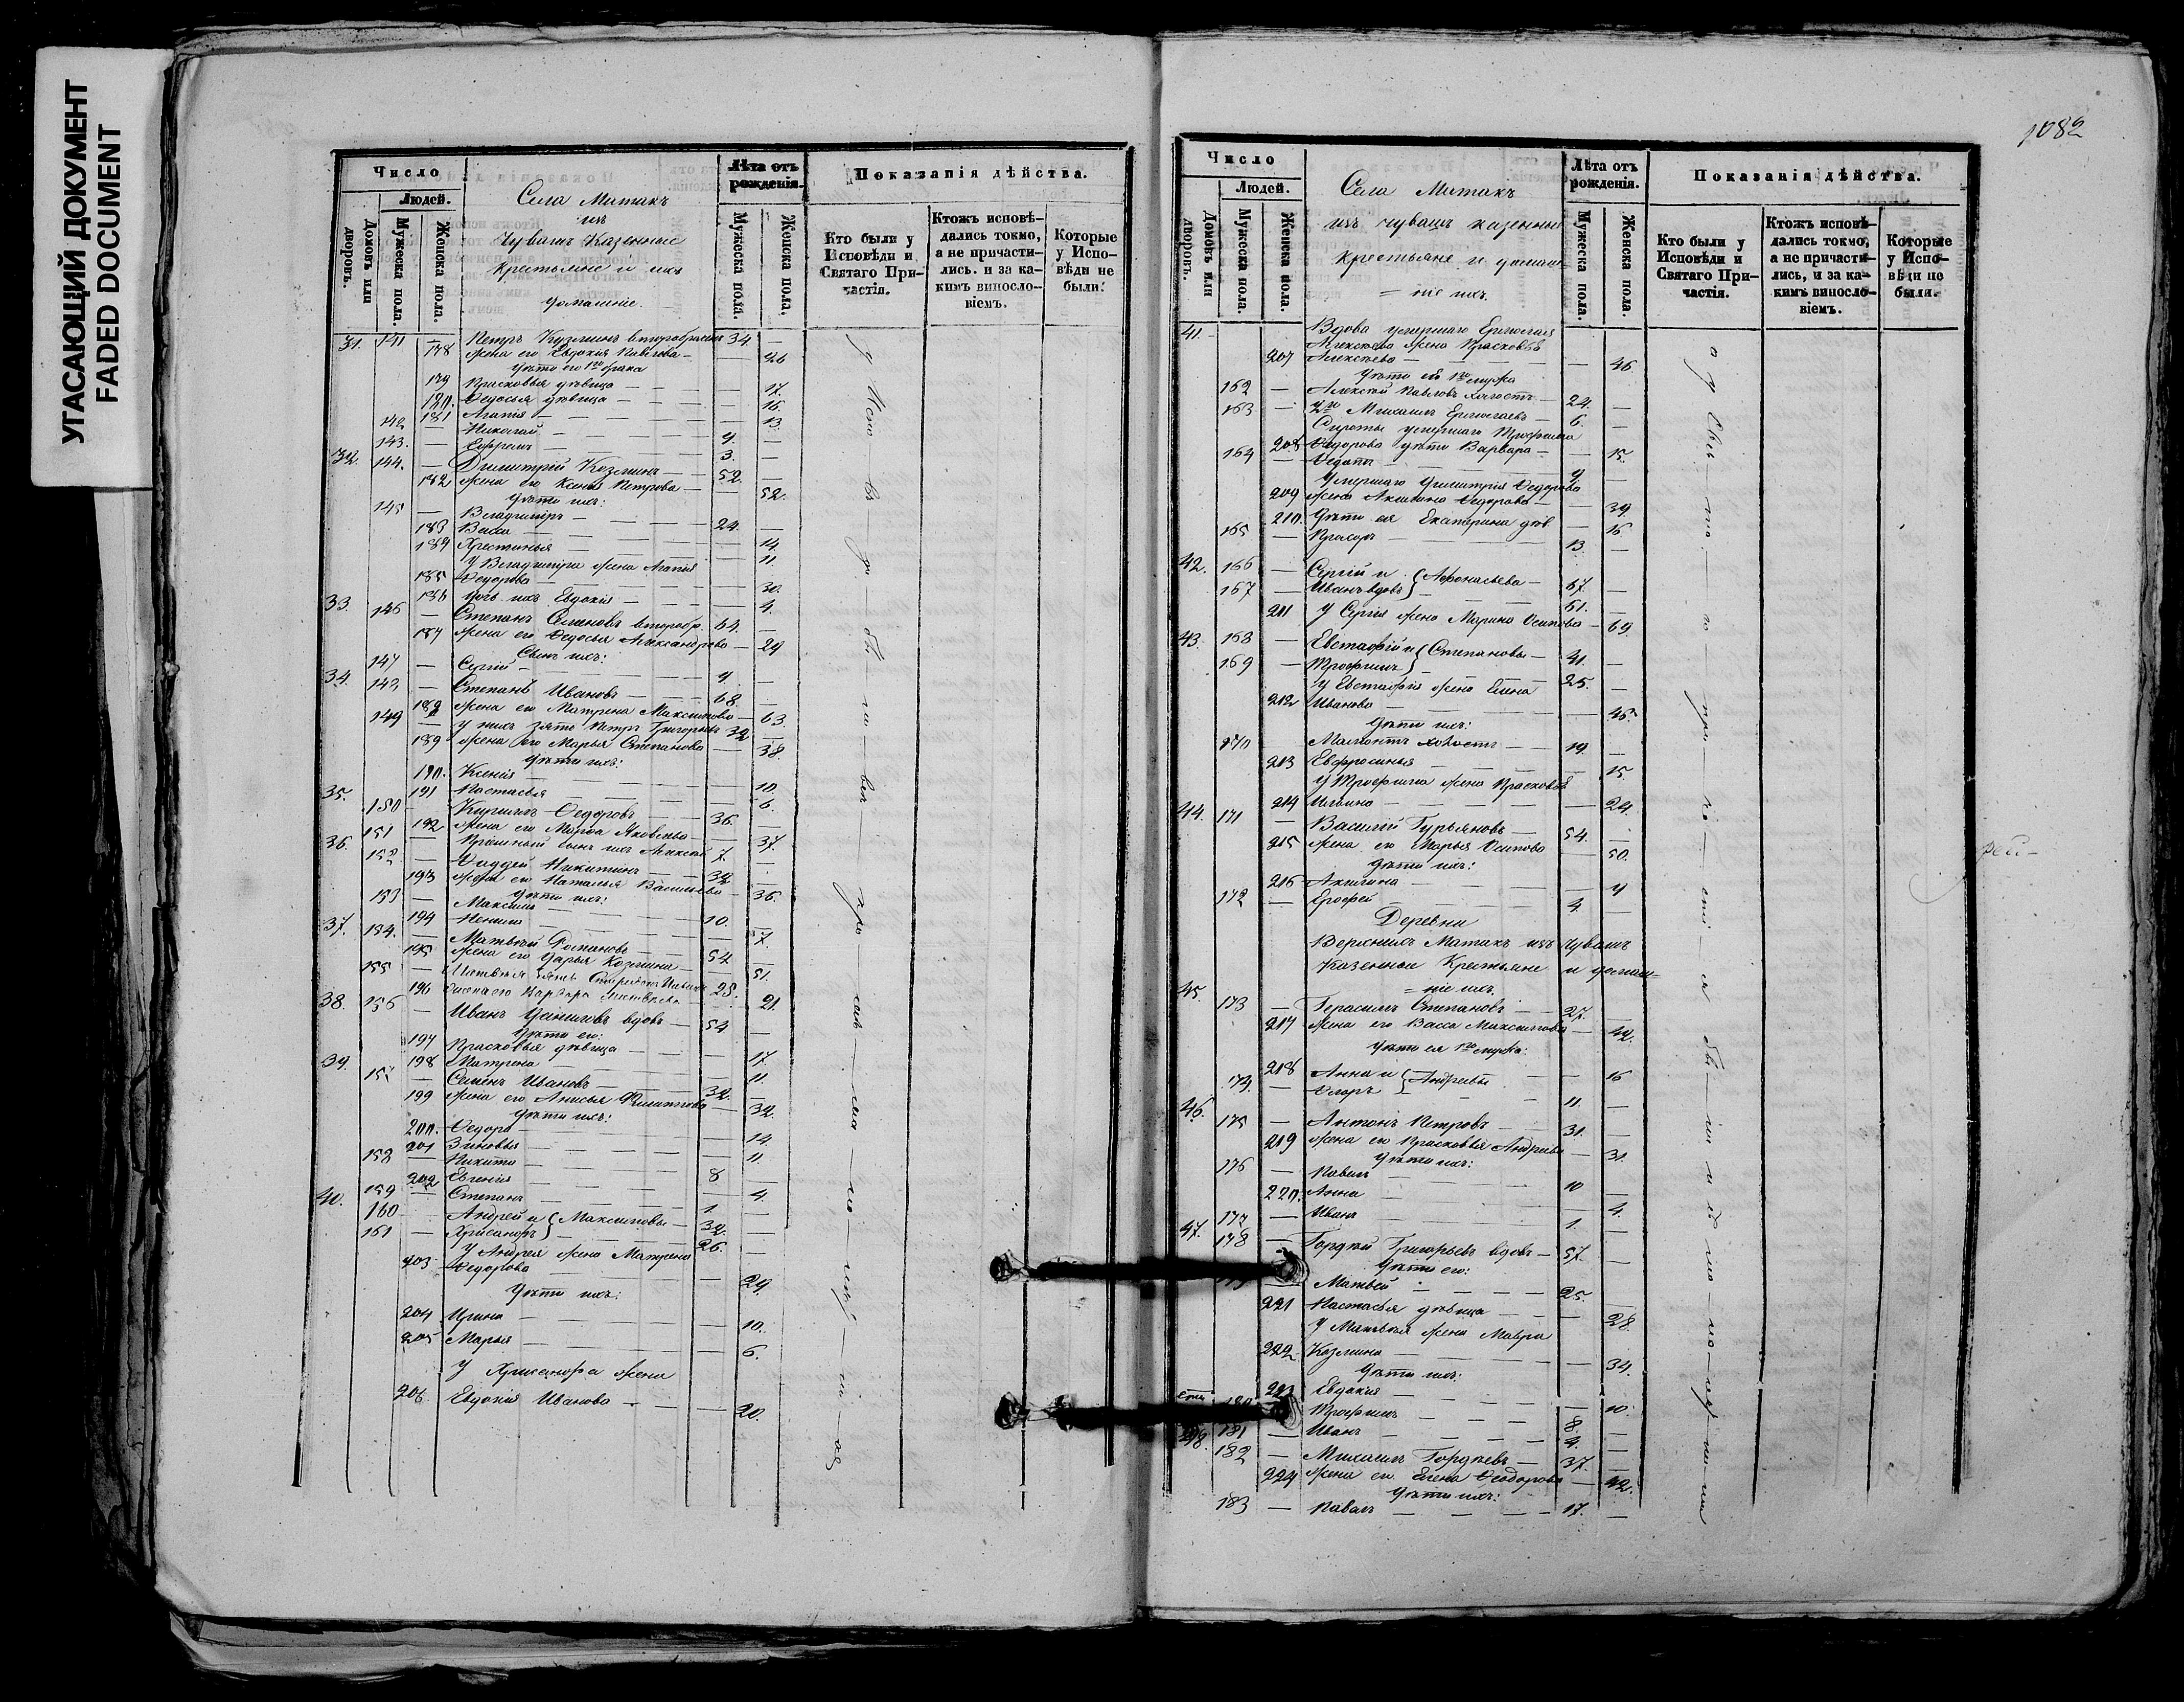 УГАСАЮЩИЙ ДОКУМЕНТ
FADED DOCUMENT
Число
Людей.
Домовъ или дворовъ.
Мужеска пола.
Женска пола.
Села Матакъ
изъ
Чувашъ Казенные
Крестьяне и ихъ
домашніе.
Лѣта отъ рожденія.
Мужеска пола.
Женска пола.
Показанія дѣйства.
Кто были у Исповѣди и Святаго Причастія.
Ктожъ исповѣдались токмо, а не причастились. и за какимъ винословіемъ.
Которые у Исповѣди не были.
31. 141 — Петръ Кузминъ второбрачн 34 —
178 Жена его Евдокія Павлова — 26
Дѣти его 1го брака
179 Прасковья дѣвица — — 17.
180. Ѳедосья дѣвица — — 16.
181 Агапія — — 13.
142 — Николай — 9. —
143. — Ефремъ — 3. —
32. 144. — Димитрій Козминъ — 52. —
182 Жена его Ксенія Петрова — 52.
Дѣти ихъ:
145 — Владиміръ — 24. —
183 Васса — — 14.
184 Хрестинья — — 11.
У Владиміра жена Агапія
185 Ѳедорова — — 30.
186 Дочь ихъ Евдокія — — 4.
33. 146 — Степанъ Семеновъ второбр. 64. —
187 Жена его Ѳедосья Александрова — 29
Сынъ ихъ:
147 — Сергій — 9. —
34. 148 — Степанъ Ивановъ — 68. —
188 Жена его Матрена Максимова — 63.
149 — У нихъ зять Петръ Григорьевъ 32 —
189 Жена его Марья Степанова — 38.
Дѣти ихъ:
190. Ксенія — — 10.
191 Настасья — — 6.
35. 150 — Ѳедоровъ — 36. —
192 Жена его Марѳа Яковлева — 37.
151 — Пріемный сынъ ихъ Алексѣй 7. —
36. 152. — Ѳаддей Никитинъ — 32 —
193 Жена его Наталья Васильева — 36.
Дѣти ихъ:
153 — Максимъ — 10. —
194 — 7.
37. 154. — Матвѣй Романовъ — 54 —
195 Жена его Дарья Козмина — 51.
155 — Матвѣя зять 25. —
196 Жена его Варвара — 21.
38. 156 — Иванъ Даниловъ вдовъ — 54 —
Дѣти его:
197 Прасковья дѣвица — — 17.
198 Матрена — — 11.
39. 157 — Семенъ Ивановъ — 32. —
199 Жена его Анисья Филиппова — 32.
Дѣти ихъ:
200. Ѳедора — — 14.
201 Зиновья — — 11.
158 — Никита — 8 —
202 Евгенія — — 4.
159 — Степанъ — 1. —
40. 160 — Андрей и { Максимовы — 32. —
161 — Хрисанфъ } — 26. —
У Андрея жена Матрена
203 Ѳедорова — — 29.
Дѣти ихъ:
204 Ирина — — 10.
205 Марья — — 6.
У Хрисанфа жена
206 Евдокія Иванова — — 20.
1082
Число
Людей.
Домовъ или дворовъ.
Мужеска пола.
Женска пола.
Села Матакъ
изъ чувашъ казенные
крестьяне и домаш=
=ніе ихъ.
Лѣта отъ рожденія.
Мужеска пола.
Женска пола.
Показанія дѣйства.
Кто были у Исповѣди и Святаго Причастія.
Ктожъ исповѣдались токмо, а не причастились, и за какимъ винословіемъ.
Которые у Исповѣди не были.
41. — Вдова умершаго Ермолая
Алексѣева жена Прасковья
207 Алексѣева — — 46
Дѣти ея 1го мужа
162 — Алексѣй Павловъ холостъ — 24. —
163 — 2го Михаилъ Ермолаевъ — 6. —
Сироты умершаго Трофима
208 Ѳедорова дѣти Варвара — — 15.
164 — Ѳедотъ — 9 —
Умершаго Димитрія Ѳедорова
209 жена Акилина Ѳедорова — — 39.
210. Дѣти ея Екатерина дѣв. — 16
165 — Прохоръ — 13. —
42. 166 — Сергій и { Афонасьева — 67. —
167 — Иванъ вдовъ } — 61. —
211 У Сергія жена Марина Осипова — 69.
43. 168 — Евстафій и { Степановы — 41. —
169 — Трофимъ } — 25. —
У Евстафія жена Елена
212 Иванова — — 45.
Дѣти ихъ:
170 Мамонтъ холостъ — 19. —
213 Евфросинья — — 15
У Трофима жена Прасковья
214 Ильина — — 24.
44. 171 — Василій Гурьяновъ — 54. —
215 Жена его Марья Осипова — 50.
Дѣти ихъ:
216 Акилина — — 9
172 — Ерофей — 4. —
Деревни
Верхнихъ Матакъ изъ Чувашъ
Казенные Крестьяне и домаш=
=ніе ихъ.
45. 173 — Герасимъ Степановъ — 27. —
217 Жена его Васса Максимова — 42.
Дѣти ея 1го мужа:
218 Анна и { Андреевы — — 16
174. — Флоръ } — 11. —
46. 175 — Антонъ Петровъ — 31. —
219 Жена его Прасковья Андреева — 31.
Дѣти ихъ:
176 — Павелъ — 10 —
220. Анна — — 4.
177 — Иванъ — 1. —
47. 178 — Гордѣй Григорьевъ вдовъ — 57. —
Дѣти его:
179 — Матвей — 25. —
221 Настасья дѣвица — — 28.
У Матвѣя жена Мавра
222 Козмина — — 34.
Дѣти ихъ:
223 Евдокія — — 10.
180 — Трофимъ — 8. —
181 — Иванъ — 4. —
48. 182 — Михаилъ Гордѣевъ — 37. —
224 Жена его Елена Ѳеодорова — 42.
Дѣти ихъ:
183 — Павелъ — 17. —